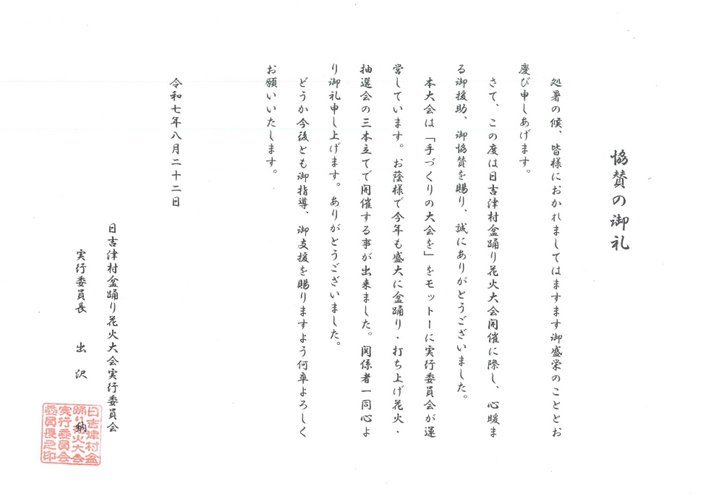 協賛の御礼
処暑の候、皆様におかれましてはますます御盛栄のこととお
慶び申しあげます。
さて、この度は日吉津村盆踊り花火大会開催に際し、心暖ま
る御援助、御協賛を賜り、誠にありがとうございました。
本大会は「手づくりの大会を」をモットーに実行委員会が運
営しています。お蔭様で今年も盛大に盆踊り・打ち上げ花火・
抽選会の三本立てで開催する事が出来ました。関係者一同心よ
り御礼申し上げます。ありがとうございました。
どうか今後とも御指導、御支援を賜りますよう何卒よろしく
お願いいたします。
令和七年八月二十二日
日吉津村盆踊り花火大会実行委員会
実行委員長 出沢 納
日吉津村盆
踊り花火大会
実行委員会
委員長之印